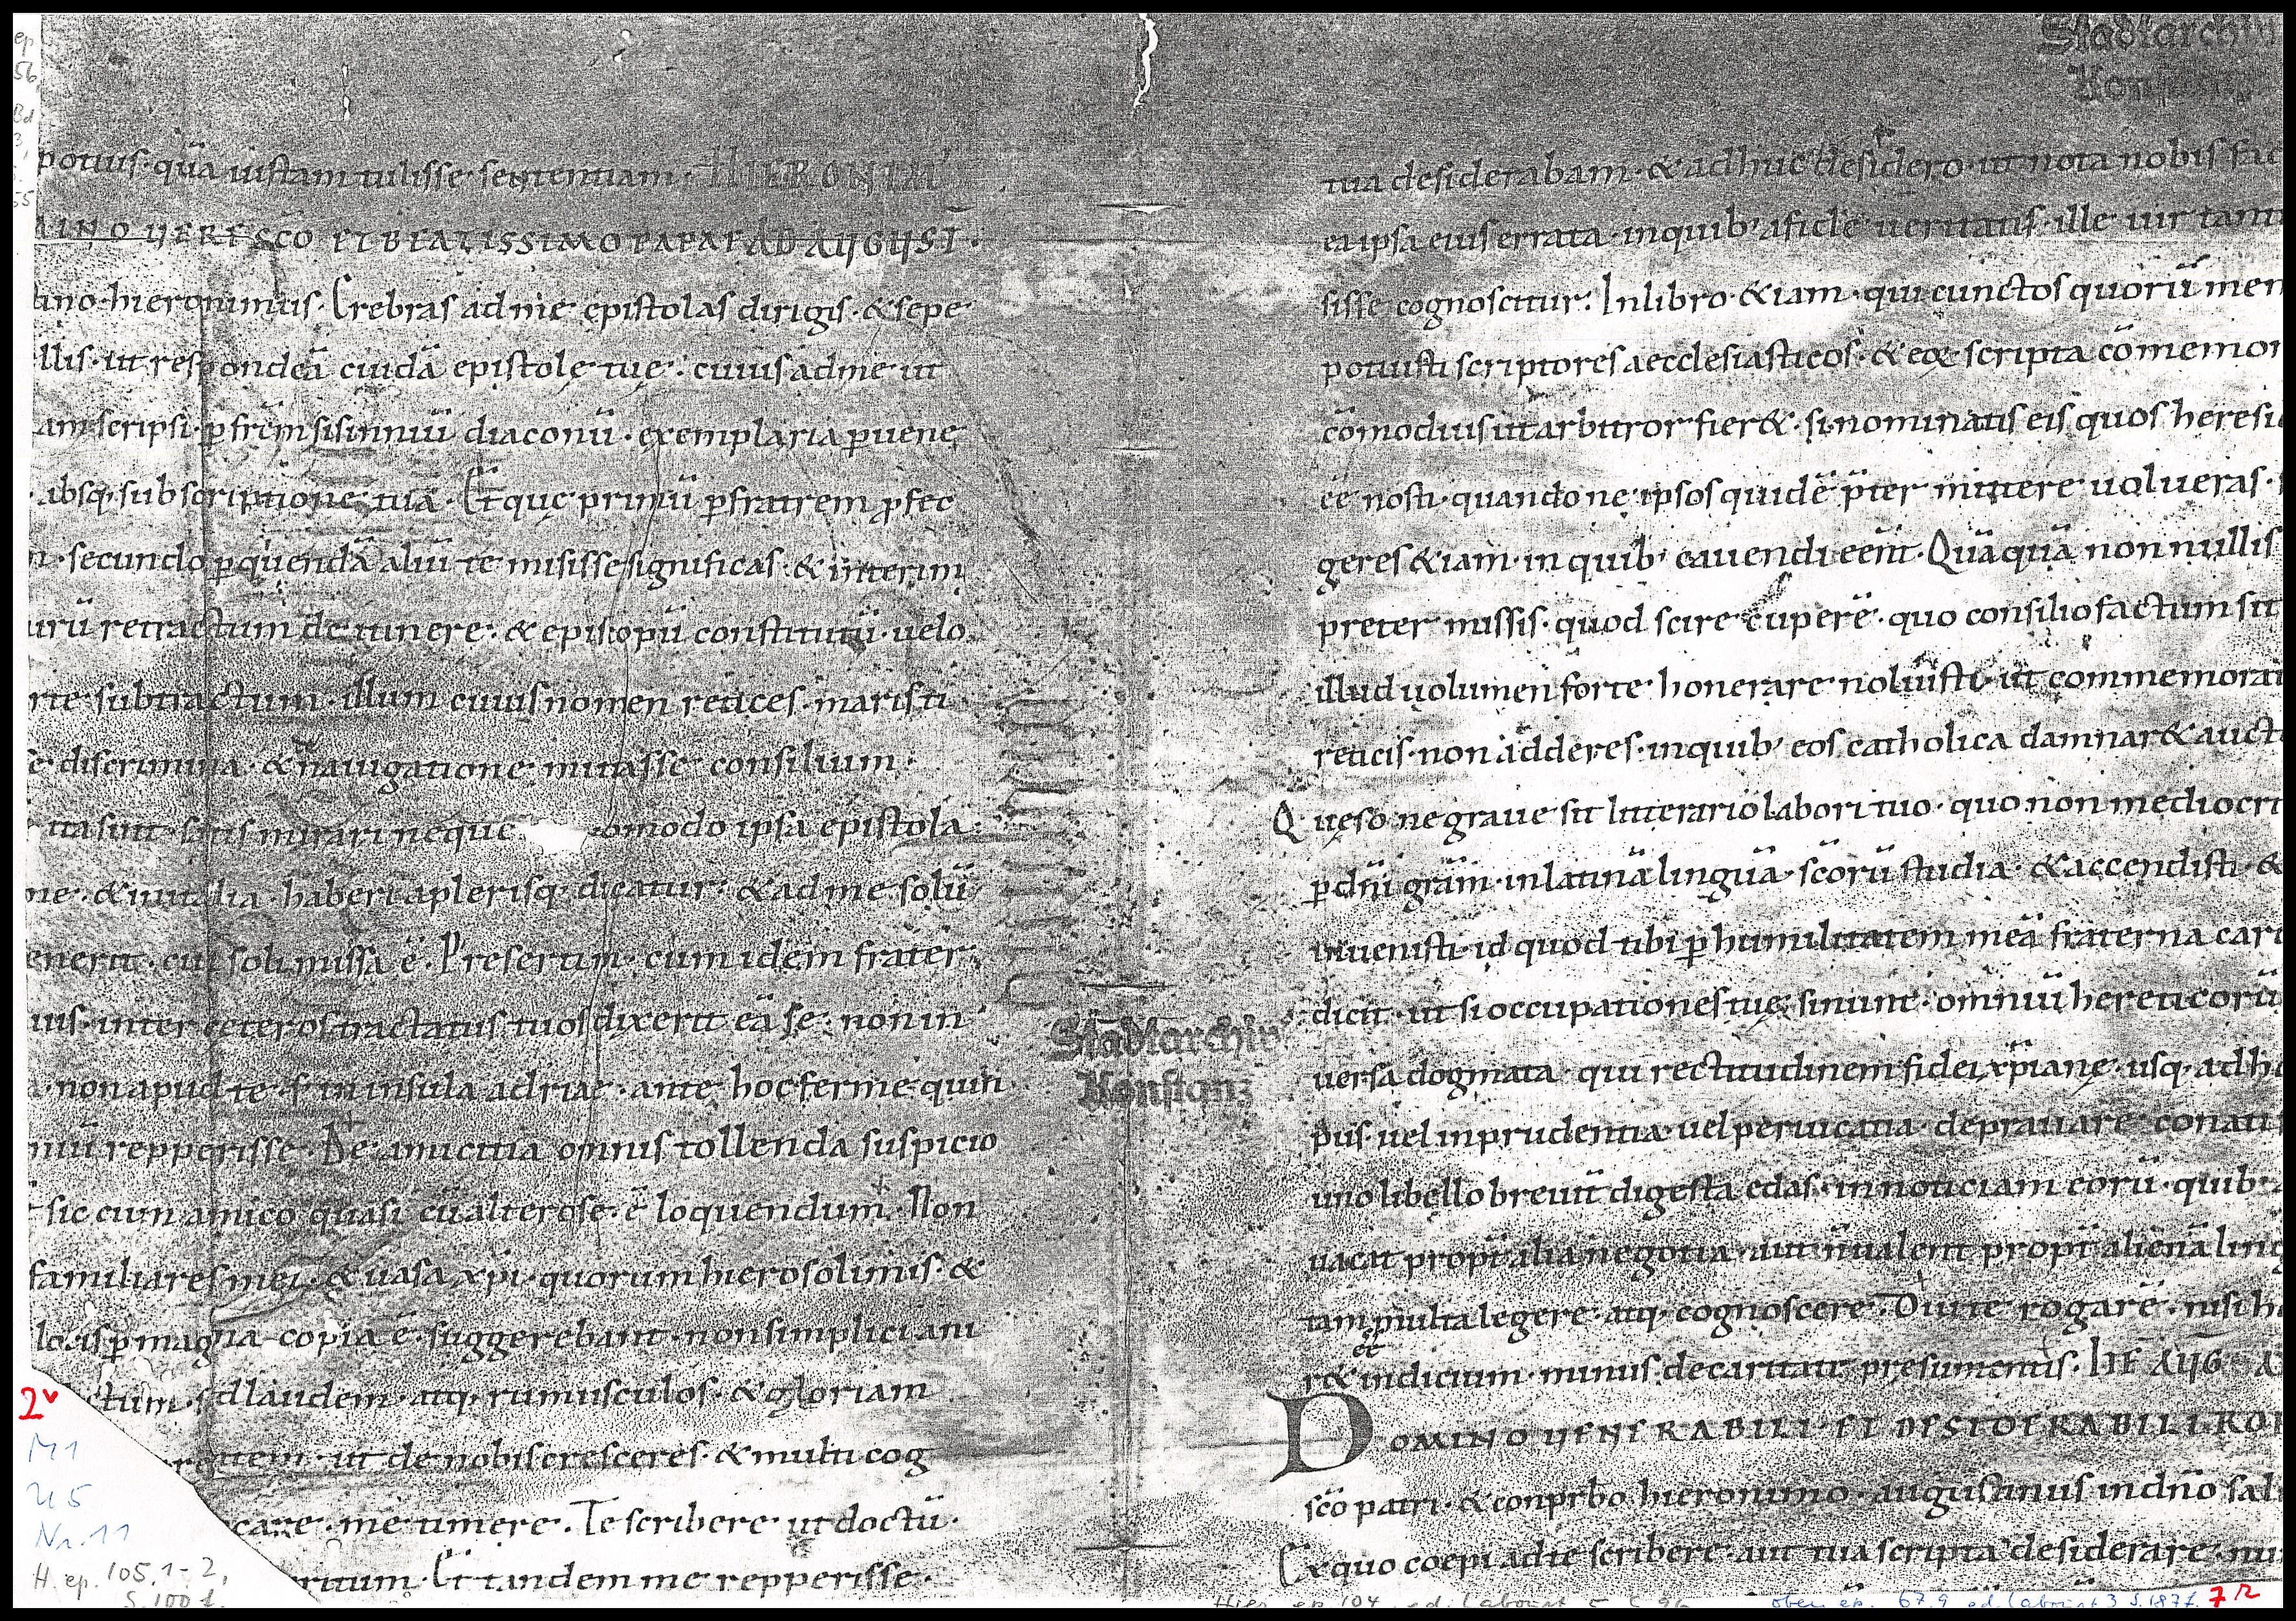 potius · quā iustam tulisse · sententiam · HIERONIM'
MINO UERE SCO ET BEATISSIMO PAPAE AD AUGUST ·
tino · hieronimus · Crebras ad me epistolas dirigis · & sepe
llis · ut respondeā cuidā epistole tue · cuius ad me ut
am scripsi · p frēm sisinniū diaconū · exemplaria puene
absq · subscriptione tua · Et que primū p fratrem pfec
n · secundo p quendā aliū te misisse significas · & interim
urū retractum de itinere · & episcopū constitutū · uelo
rte subtractum · illum cuius nomen retices · maris ti
ē discrimina · & nauigatione mutasse consilium ·
ita sint · satis mirari neque omodo ipsa epistola
me · & in italia haberi a plerisq · dicatur · & ad me solū
enerit · cui soli missa ē · Presertim · cum idem frater
uis · inter ceteros tractatus tuos dixerit eā se · non in
a · non apud te · s in insula adriae · ante hoc ferme quin
niū repperisse · De amicitia omnis tollenda suspicio
sic cum amico quasi cū altero se · ē loquendum · Non
familiares mei · & uasa xpi · quorum hierosolimis · &
locis p magna copia ē · suggerebant · non simplici ani
ctum · s ad laudem · atq · rumusculos · & gloriam
tem · ut de nobis cresceres · & multi cog
care · me timere · Te scribere ut doctū ·
ritum · Et tandem me repperisse ·
Stadtarchiv
Konstanz
tua desiderabam · & adhuc desidero · ut nota nobis fac
ea ipsa eius errata · in quib' a fide ueritatis · ille uir tant
sisse cognoscitur · In libro & iam · qui cunctos quorū mem
potuisti scriptores aecclesiasticos · & eoꝝ scripta cōmemor
cōmodius ut arbitror fier& · si nominatis eis quos heresi
eē nosti · quando ne ipsos quidē pter mittere uolueras ·
geres & iam · in quib' cauendi eent · Quā quā non nullis
preter missis · quod scire cuperē · quo consilio factum sit
illud uolumen forte honerare noluisti · ut commemorat
reticis · non adderes · in quib' eos catholica damnar& auct
Queso ne graue sit litterario labori tuo · quo non mediocri
p dni gram · in latinā linguā · scorū studia · & accendisti · &
iuuenisti · id quod tibi p humilitatem meā fraterna car
dicit · ut si occupationes tue · sinunt · omniū hereticorū
uersa dogmata · qui rectitudinem fidei xpiane · usq · ad ho
pus · uel inprudentia uel peruicatia · deprauare conati
uno libello breuit digesta edas · in noticiam eorū · quib'
uacat propt alia negotia · aut n ualent propt alienā ling
tam multa legere · atq · cognoscere · Diu te rogarē · nisi h
ee
r& indicium · minus de caritate presumentis · ITE AUG
DOMINO UENERABILI · ET DESIDERABILI · ROI
sco patri · & conprbo hieronimo · augustinus in dno sal
Ex quo coepi ad te scribere · aut tua scripta desiderare · nu
Stadtarchiv
Konstanz
2v
M1
U5
Nr. 11
H. ep. 105.1-2,
S. 100 f.
Hier. ep. 104 ed. Labourt 5 S. 96
oben ep. 67.9 ed. Labourt 3 S. 187 f.
7r